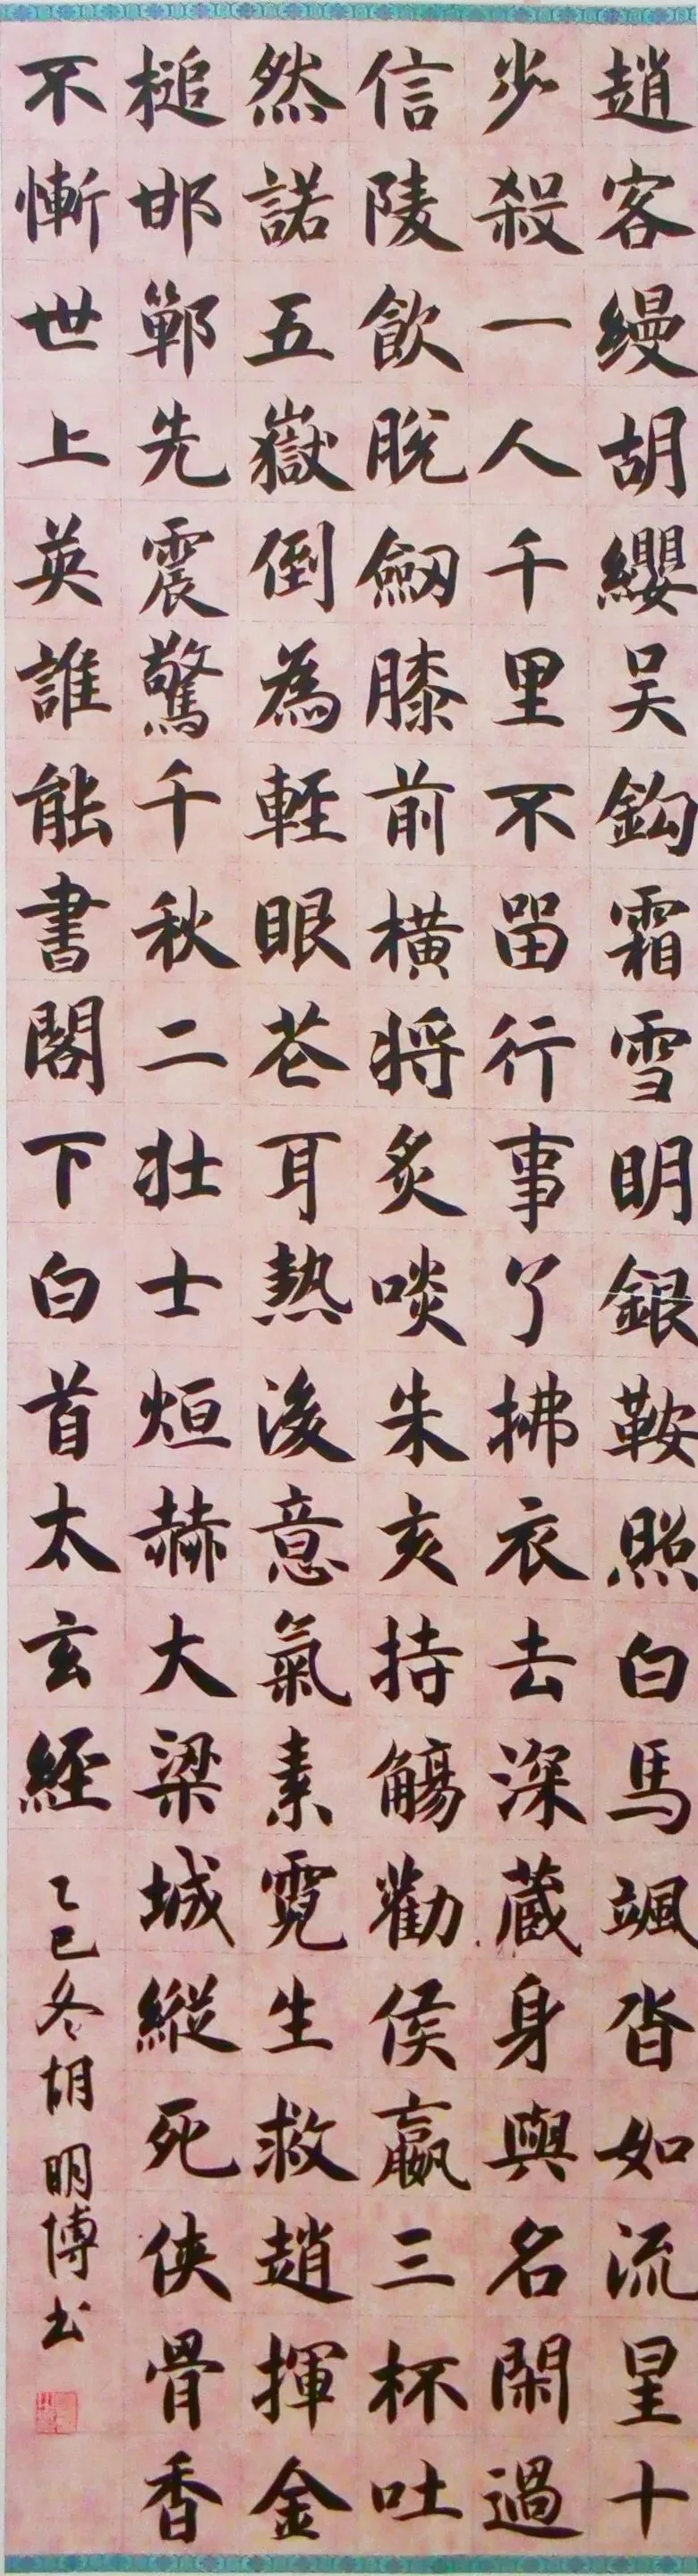 趙客縵胡纓吴鈎霜雪明銀鞍照白馬颯沓如流星十
步殺一人千里不留行事了拂衣去深藏身與名閑過
信陵飲脫劒膝前橫将炙啖朱亥持觴勸侯嬴三杯吐
然諾五嶽倒為輕眼花耳熱後意氣素霓生救趙揮金
槌邯鄲先震驚千秋二壮士烜赫大梁城縱死侠骨香
不慚世上英誰能書閣下白首太玄經
乙巳冬胡明博书